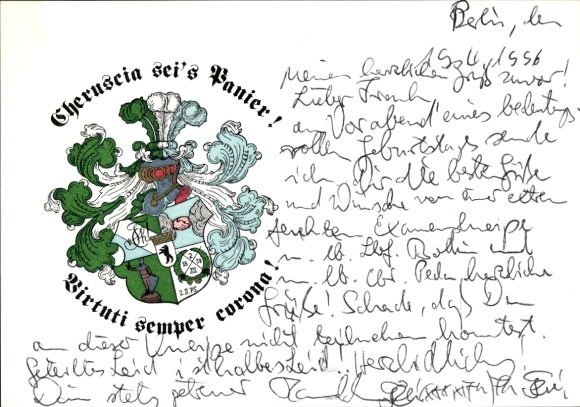 Cheruscia sei's Panier!
Virtuti semper corona!
Berlin, den
1996
Meinen herzlichen Gruß zuvor!
Lieber Frank,
am Vorabend eines bedeutungs-
vollen Geburtstages sende
ich Dir die besten Grüße
und Wünsche von einer
Examenskneipe
m. lb. und
m. lb. herzliche
Grüße! Schade, daß Du
an dieser Kneipe nicht teilnehmen konntest.
Geteiltes Leid ist halbes Leid! Herzlichst
Dein stets getreuer